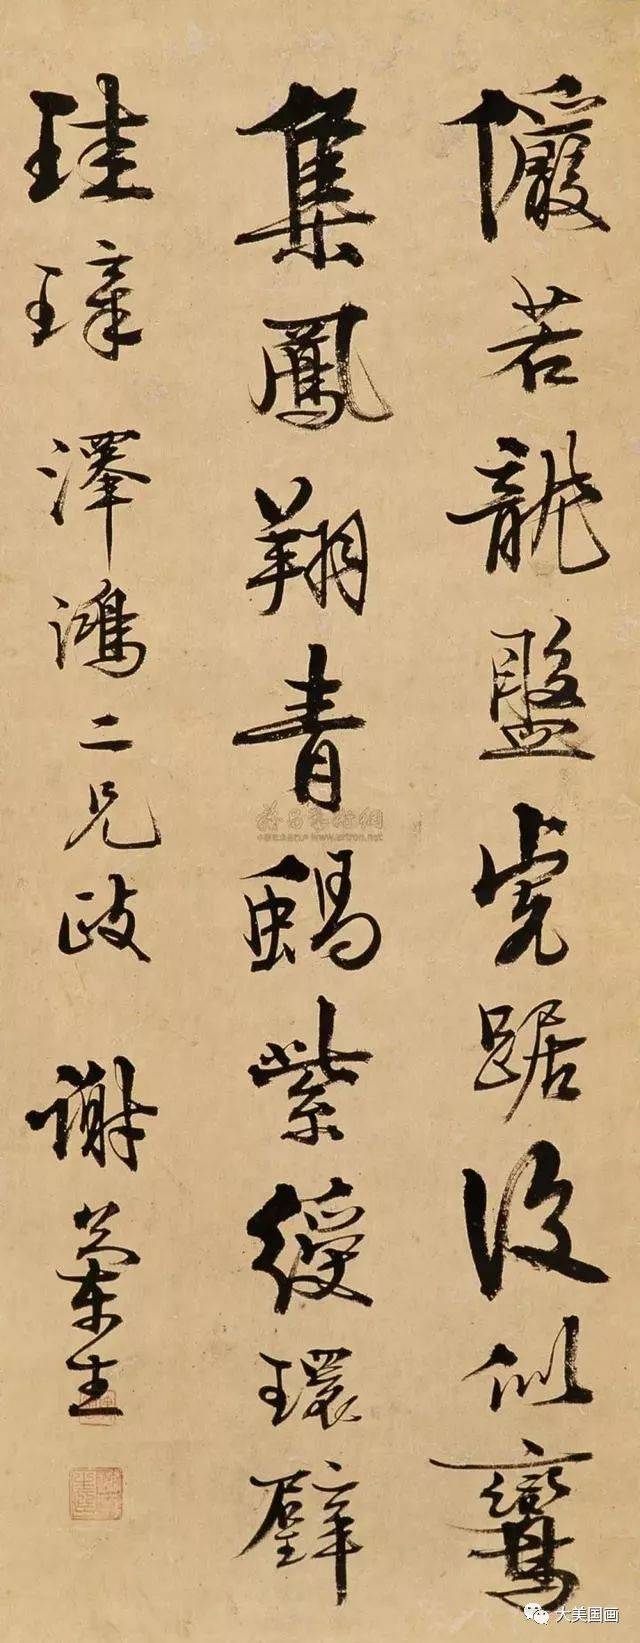 儼若龍盤虎踞復似鸞
集鳳翔青紫綬環璧
珪璋 澤鴻二兄政 謝蘭生
www.artron.net
大美国画